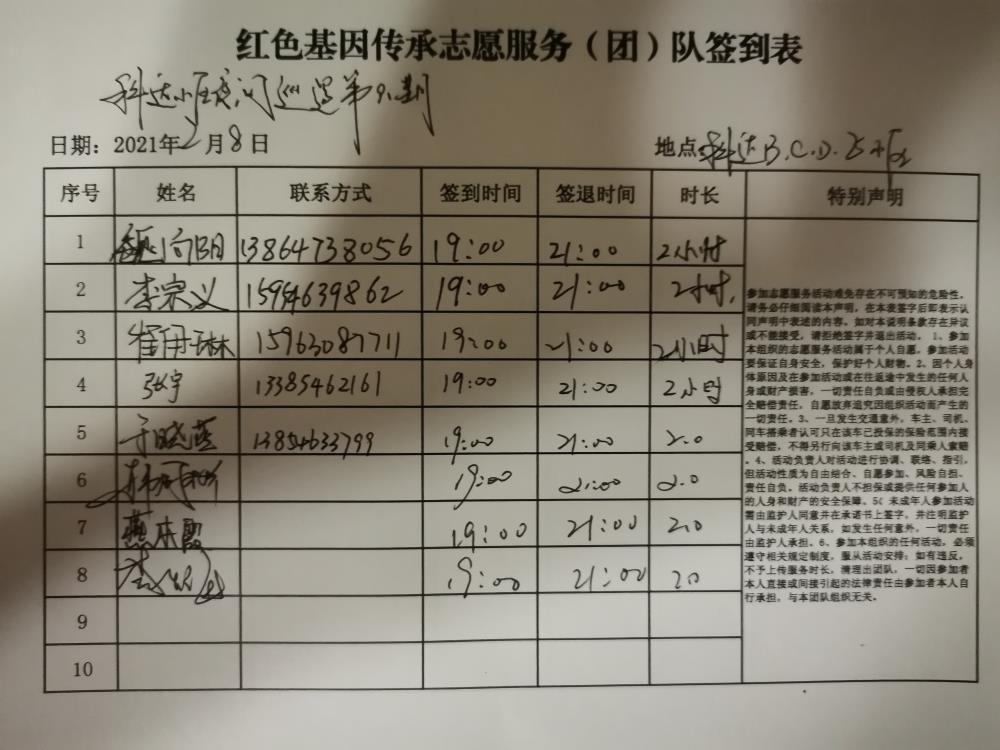 红色基因传承志愿服务（团）队签到表
科达小区夜间巡逻第
日期：2021年2月8日 地点：科达B.C.D.E小区
序号 姓名 联系方式 签到时间 签退时间 时长 特别声明
1 13864738056 19:00 21:00 2小时
2 李宗义 15954639862 19:00 21:00 2小时.
3 15963087711 19:00 21:00 2小时
4 张宇 13385462161 19:00 21:00 2小时
5 于晓蓝 13854633799 19:00 21:00 2.0
6 19:00 21:00 2.0
7 燕本霞 19:00 21:00 2.0
8 19:00 21:00 20
9
10
参加志愿服务活动难免存在不可预知的危险性，
请务必仔细阅读本声明，在本表签字后即表示认
同声明中表述的内容。如对本说明条款存在异议
或不能接受，请拒绝签字并退出活动。1、参加
本组织的志愿服务活动属于个人自愿，参加活动
要保证自身安全，保护好个人财物。2、因个人身
体原因及在参加活动或在往返途中发生的任何人
身或财产损害，一切责任自负或由侵权人承担完
全赔偿责任，自愿放弃追究因组织活动而产生的
一切责任。3、一旦发生交通意外，车主、司机、
同车搭乘者认可只在该车已投保的保险范围内接
受赔偿，不得另行向该车主或司机及同乘人索赔
。4、活动负责人对活动进行协调、联络、指引，
但活动性质为自由结合、自愿参加、风险自担、
责任自负。活动负责人不担保或提供任何参加人
的人身和财产的安全保障。5（未成年人参加活动
需由监护人同意并在承诺书上签字，并注明监护
人与未成年人关系，如发生任何意外，一切责任
由监护人承担。6、参加本组织的任何活动，必须
遵守相关规定制度，服从活动安排；如有违反，
不予上传服务时长，清理出团队，一切因参加者
本人直接或间接引起的法律责任由参加者本人自
行承担，与本团队组织无关。